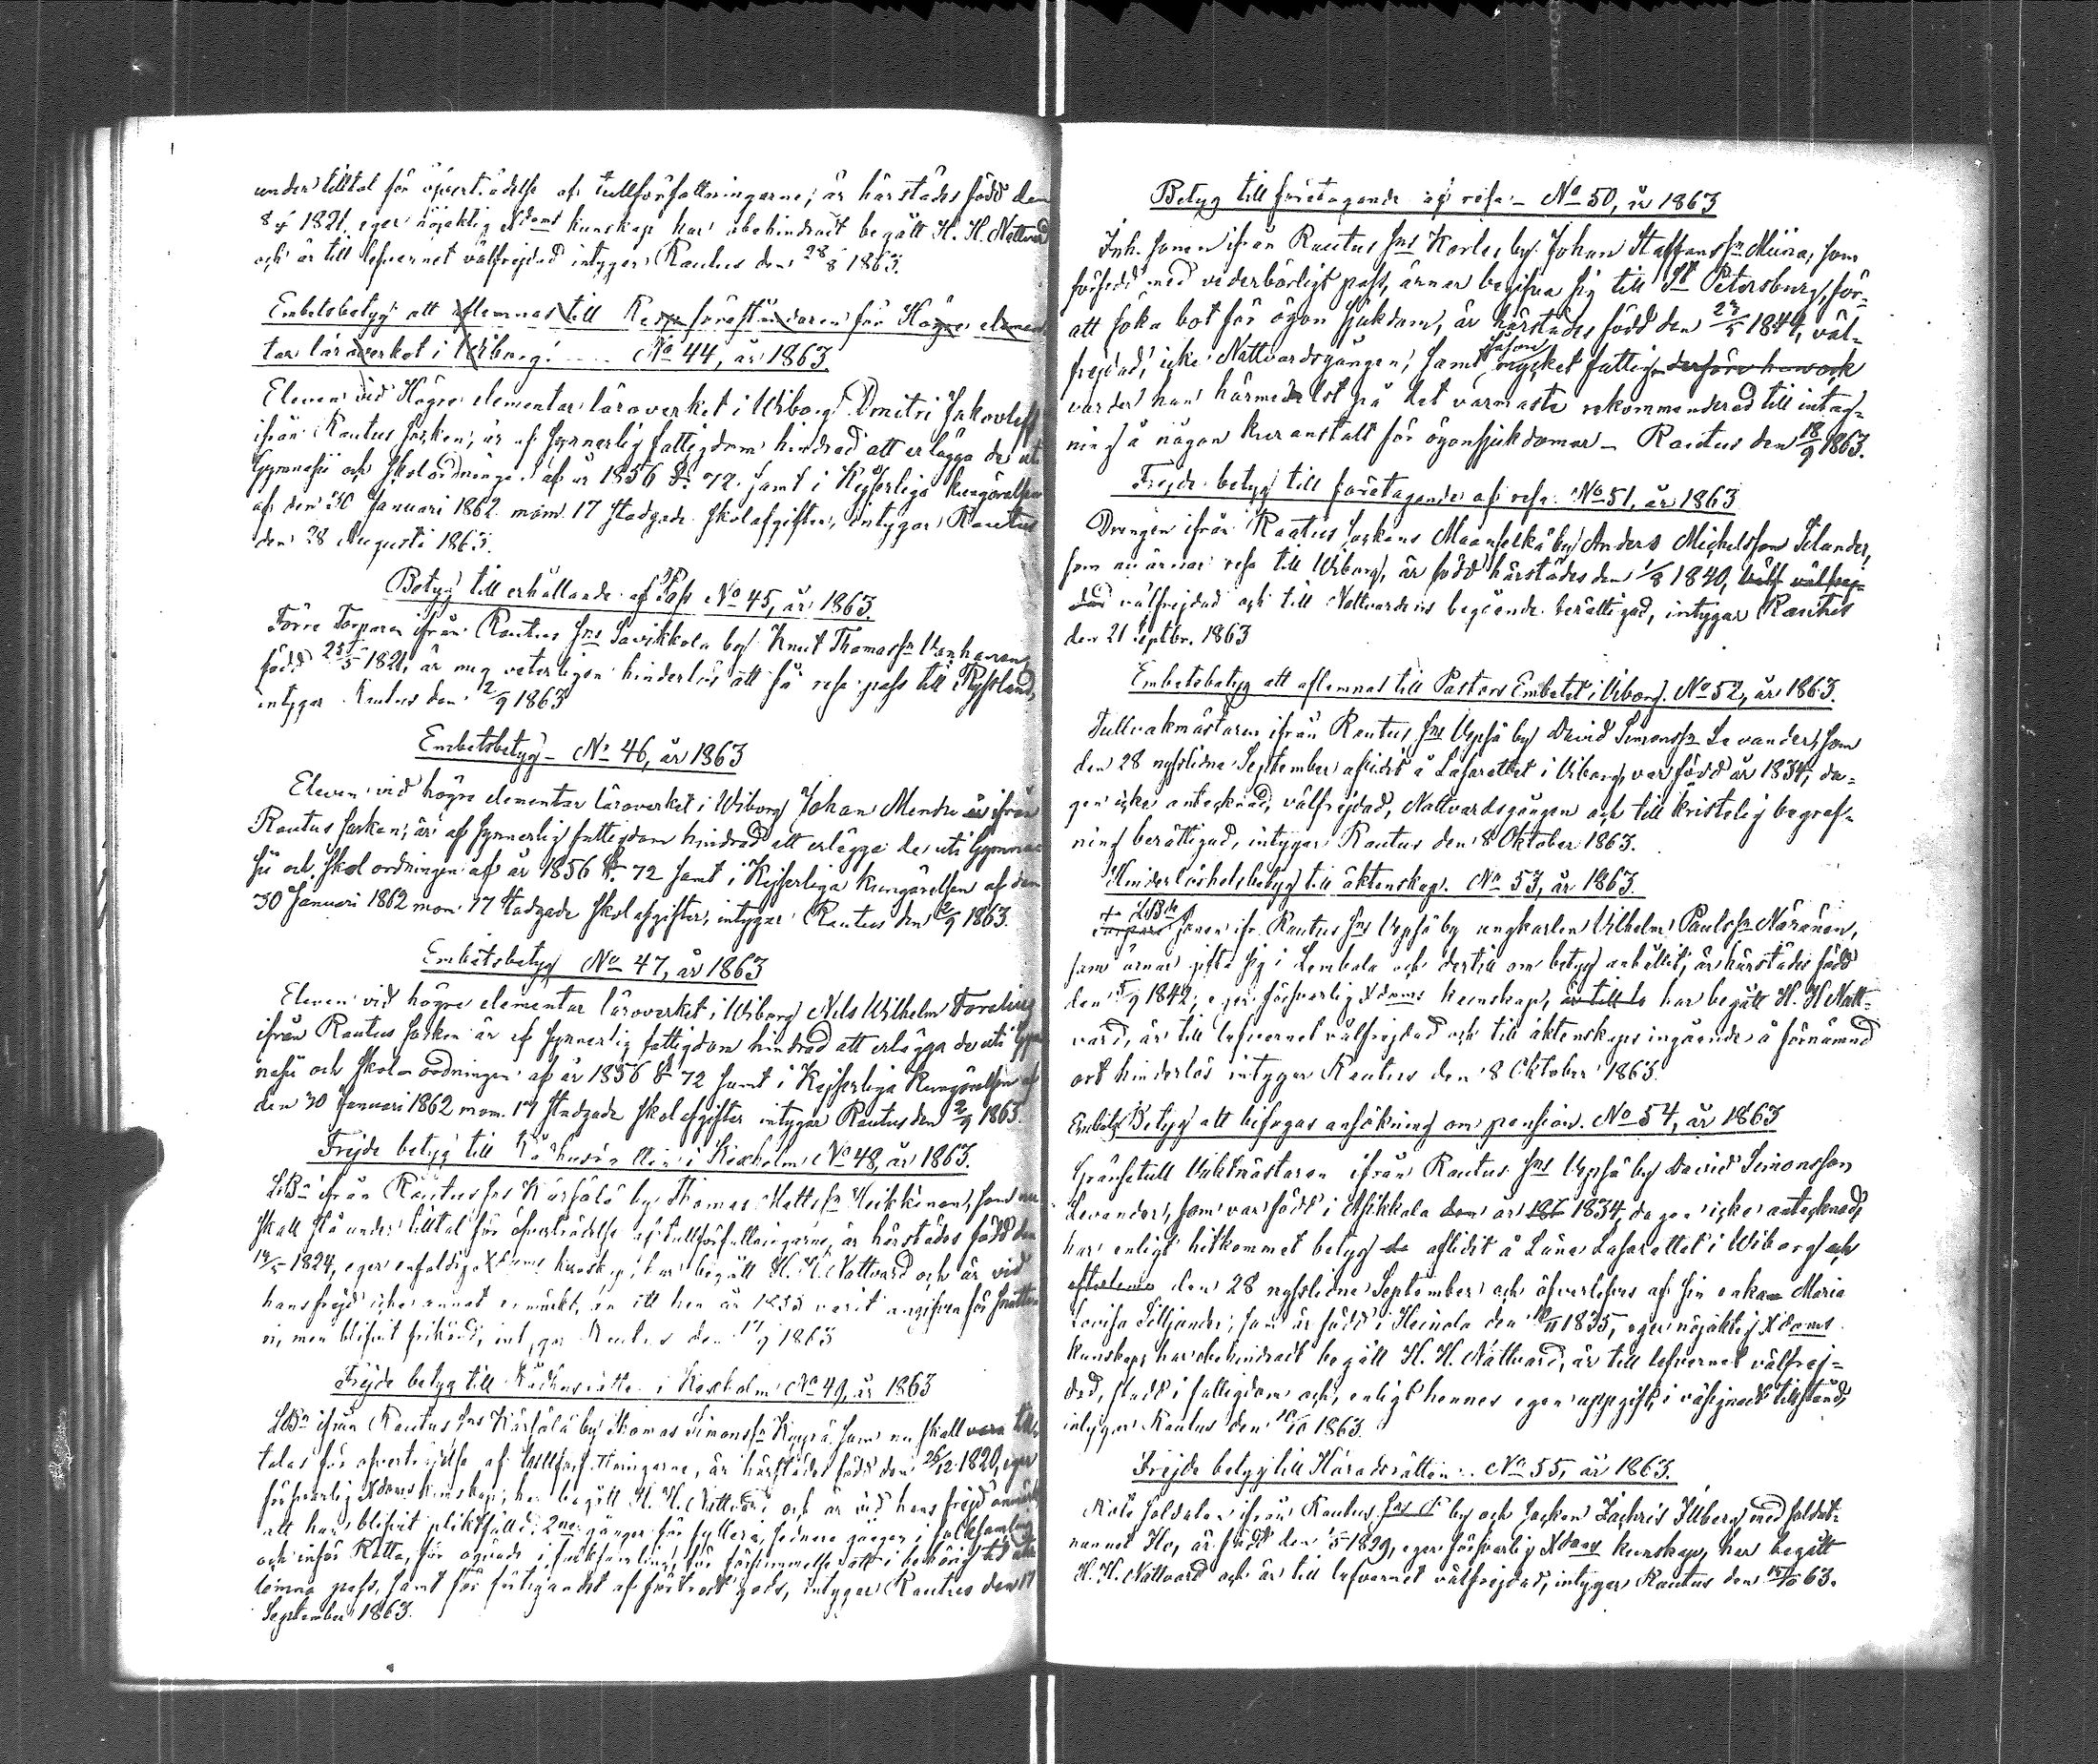 under tilltal för öfverträdelse af tullförfattningarne, är härstädes född den
8/4 1821, eger nöjaktig Xdoms kunskap har obehindradt begått H. H. Nattvard
och är till lefvernet välfrejdad intygar Rautus den 28/8 1863.
Embetsbetyg att aflemnas till Resp. föreståndaren för Högre elemen
tar läroverket i Wiborg. No 44, år 1863.
Eleven vid Högre elementar läroverket i Wiborg Dmitri Jakovleff
ifrån Rautus socken, är af synnerlig fattigdom hindrad att erlägga de uti
Gymnasii och Skolordningen af år 1856 § 72. samt i Kejserliga kungörelsen
af den 30 Januari 1862 mom. 17 stadgade skolafgifter, intygar Rautus
den 28 Augusti 1863.
Betyg till erhållande af Pass No 45, år 1863.
Förre Torparen ifrån Rautus Sns Savikkola by Knut Thomassn Vanhanen,
född 25/5 1821, är mig veterligen hinderlös att få resepass till Ryssland,
intygar Rautus den 2/9 1863
Embetsbetyg - No 46, år 1863
Eleven vid högre elementar läroverket i Wiborg Johan Mendu är ifrån
Rautus socken, är af synnerlig fattigdom hindrad att erlägga de uti Gymna
sii och Skolordningen af år 1856 § 72 samt i Kejserliga kungörelsen af den
30 Januari 1862 mom. 17 stadgade skolafgifter, intygar Rautus den 2/9 1863.
Embetsbetyg No 47, år 1863
Eleven vid högre elementar läroverket i Wiborg Nils Wilhelm Forelius
ifrån Rautus socken är af synnerlig fattigdom hindrad att erlägga de uti Gym
nasii och Skolordningen af år 1856 § 72 samt i Kejserliga kungörelsen af
den 30 Januari 1862 mom. 17 stadgade skolafgifter intygar Rautus den 2/9 1863.
Frejde betyg till Rådhusrätten i Kexholm No 48, år 1863.
LBn ifrån Rautus Sns Kärsälä by Thomas Mattssn Heikkinen, som nu
skall stå under tilltal för öfverträdelse af tullförfattningarne, är härstädes född den
14/5 1824, eger enfaldig Xdoms kunskap, har begått H. H. Nattvard och är vid
hans frejd icke annat anmärkt, än att han år 1855 varit angifven för snatte
ri, men blifvit frikänd, intygar Rautus den 17/9 1863
Frejde betyg till Rådhusrätten i Kexholm No 49, år 1863
LBn ifrån Rautus Sns Kärsälä by Thomas Simonssn Kyyrä, som nu skall vara till
talas för öfverträdelse af tullförfattningarne, är härstädes född den 26/12 1820, eger
försvarlig Xdoms kunskap, har begått H. H. Nattvard och är vid hans frejd anmärkt
att han blifvit pliktfälld 2ne gånger för fylleri, sednare gången i folksamling
och inför Rätta, för oljud i folksamling, för försummelse att i behörig tid
lemna pass, samt för förtigandet af förtrodt gods, intygar Rautus den 17
September 1863.
Betyg till företagande af resa - No 50, år 1863
Inh. sonen ifrån Rautus Sns Korle by Johan Staffanssn Miina, som
försedd med vederbörligt pass, ärnar begifva sig till St Petersburg, för
att söka bot för ögon sjukdom, är härstädes född den 23/5 1844, väl-
frejdad, icke Nattvardsgången, samt såsom mycket fattig, derföre han ock
varder han härmedelst på det varmaste rekommenderad till intag-
ning å någon kuranstalt för ögonsjukdomar - Rautus den 18/9 1863.
Frejde betyg till företagande af resa No 51, år 1863
Drengen ifrån Rautus Sockens Maanselkä by Anders Michelsson Silander,
som nu ärnar resa till Wiborg, är född härstädes den 1/8 1840, välf välfrej-
dad välfrejdad och till Nattvardens begående berättigad, intygar Rautus
den 21 Septbr. 1863
Embetsbetyg att aflemnas till Pastors Embetet i Wiborg. No 52, år 1863.
Tullvakmästaren ifrån Rautus Sns Vepsä by David Simonssn Levander, som
den 28 nyssledne September aflidit å Lasarettet i Wiborg, var född år 1834, da-
gen icke antecknad, välfrejdad, Nattvardsgången och till kristelig begraf-
ning berättigad, intygar Rautus den 8 Oktober 1863.
Hinderlöshetsbetyg till äktenskap. No 53, år 1863.
LBde
Torpare sonen ifr. Rautus Sns Vepsä by ungkarlen Vilhelm Paulssn Näränen,
som ärnar gifta sig i Lembala och dertill om betyg anhållit, är härstädes född
den 5/9 1842, eger försvarlig Xdoms kunskap, är till le har begått H. H. Natt-
vard, är till lefvernet välfrejdad och till äktenskaps ingående å förnämnd
ort hinderlös intygar Rautus den 8 Oktober 1863.
Embets Betyg att bifogas ansökning om pension. No 54, år 1863
Gränsetull Vaktmästaren ifrån Rautus Sns Vepsä by David Simonsson
Levander, som var född i Asikkala den år 186 1834, dagen icke antecknad,
har enligt hitkommet betyg de aflidit å Läne Lasarettet i Wiborg och
efterlemn den 28 nyssledne September och öfverlefves af sin enka Maria
Lovisa Silljander, som är född i Heinola den 10/11 1835, eger nöjaktig Xdoms
kunskap, har obehindradt begått H. H. Nattvard, är till lefvernet välfrej-
dad, stadd i fattigdom och, enligt hennes egen uppgift, i välsignadt tillstånd,
intygar Rautus den 10/10 1863.
Frejde betyg till Häradsrätten. No 55, år 1863.
Rote soldaten ifrån Rautus Sns by och socken Zachris Illberg med soldat-
namnet Ho, är född den 1/5 1829, eger försvarlig Xdoms kunskap, har begått
H. H. Nattvard och är till lefvernet välfrejdad, intygar Rautus den 15/10 63.